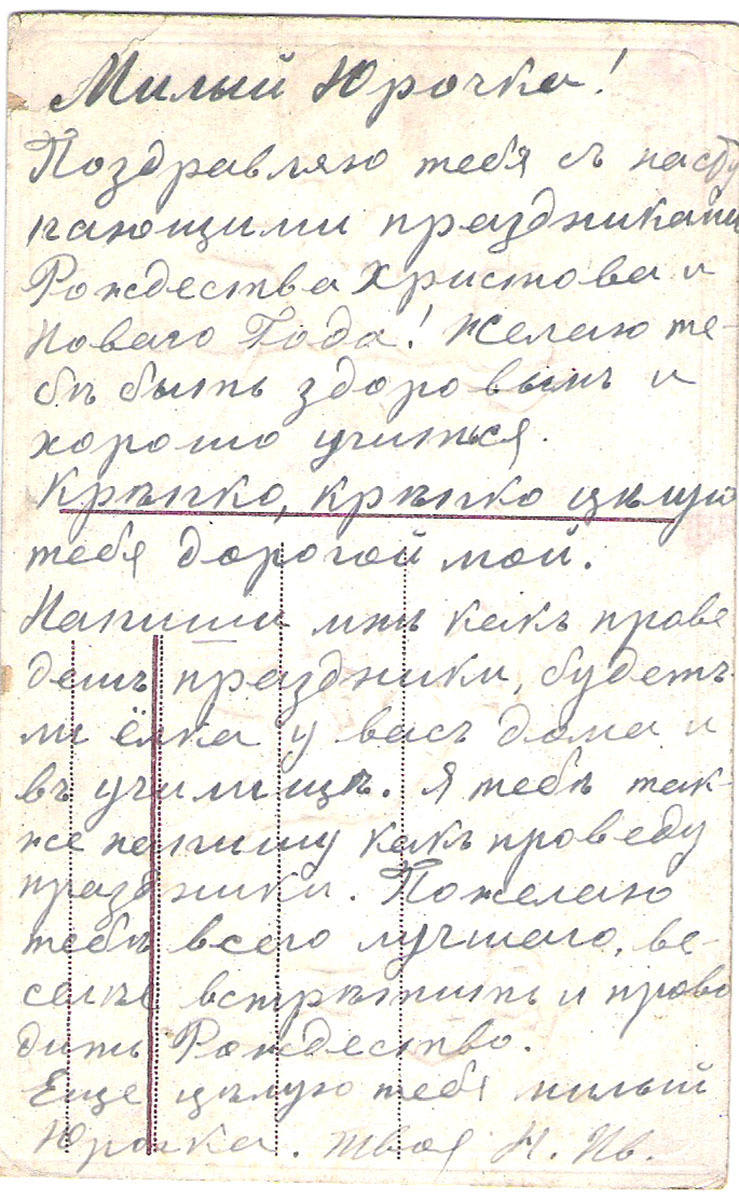 Милый Юрочка!
Поздравляю тебя съ насту
пающими праздниками
Рождества Христова и
Новаго Года! Желаю те-
бѣ быть здоровымъ и
хорошо учиться.
Крѣпко, крѣпко цѣлую
тебя дорогой мой.
Напиши мнѣ какъ прове
дешь праздники, будетъ
ли ёлка у васъ дома и
въ училищѣ. Я тебѣ так-
же напишу какъ проведу
праздники. Пожелаю
тебѣ всего лучшаго, ве-
селѣе встрѣтить и прово
дить Рождество.
Еще цѣлую тебя милый
Юрочка. Твоя Н. Ив.